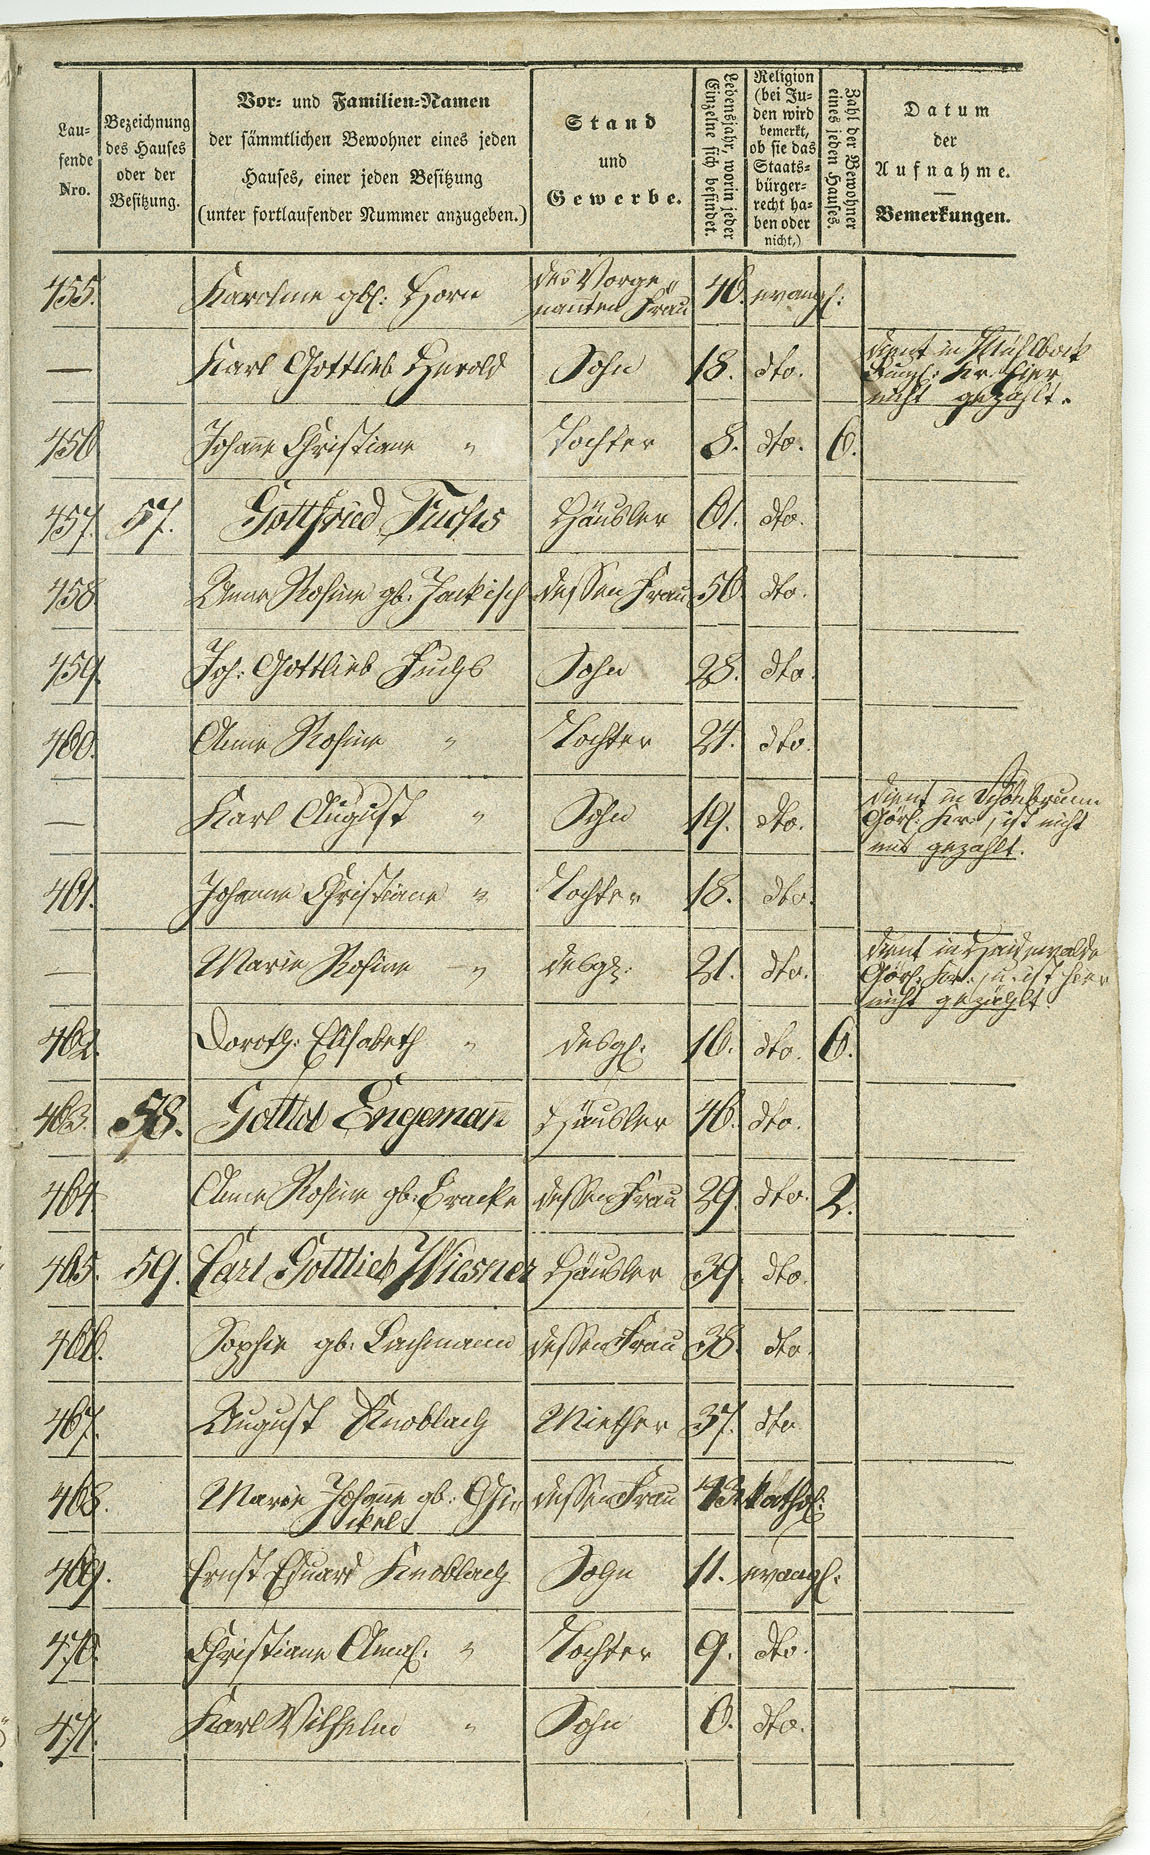 Lau-
fende
Nro.
Bezeichnung
des Hauses
oder der
Besitzung.
Vor- und Familien-Namen
der sämmtlichen Bewohner eines jeden
Hauses, einer jeden Besitzung
(unter fortlaufender Nummer anzugeben.)
Stand
und
Gewerbe.
Lebensjahr, worin jeder
Einzelne sich befindet.
Religion
(bei Ju-
den wird
bemerkt,
ob sie das
Staats-
bürger-
recht ha-
ben oder
nicht,)
Zahl der Bewohner
eines jeden Hauses.
Datum
der
Aufnahme.
Bemerkungen.
455. Karoline gbl: Horn des Vorge„ nannten Frau 46. evangl:
— Karl Gottlieb Herold Sohn 18. dto. dient in
Kr. hier
nicht gezählt.
456 Johane Christiane " Tochter 8. dto. 6.
457. 57. Gottfried Fuchs Häusler 61. dto.
458 Anne Rosine gb: Jackisch dessen Frau 56. dto.
459. Joh: Gottlieb Fuchs Sohn 28. dto.
460. Anne Rosine " Tochter 24. dto.
— Karl August " Sohn 19. dto. dient in Schönbrunn
Görl: Kr: ist nicht
mit gezählt.
461. Johanne Christiane " Tochter 18. dto.
— Marie Rosine " desgl: 21. dto. dient in
Görl: Kr: u. ist hier
nicht gezählt.
462. Doroth: Elisabeth " desgl: 16. dto. 6.
463. 58. Gottlob Engeman̄ Häusler 46. dto.
464. Anne Rosine gb: dessen Frau 29. dto. 2.
465. 59. Carl Gottlieb Wiesner Häusler 39. dto.
466. Sophie gb: Lachmann dessen Frau 38. dto.
467. August Knobloch Miether 37. dto
468. Marie Johane gb: dessen Frau 43. kathol:
469. Ernst Eduard Knobloch Sohn 11. evangl:
470. Christiane Amal: " Tochter 9. dto.
471. Karl Wilhelm " Sohn 6. dto.